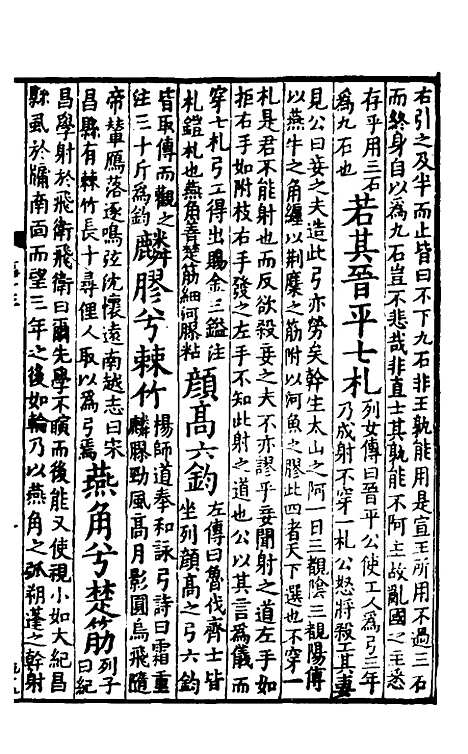 右引之及半而止皆曰不下九石非王孰能用是宣王所用不過三石
而終身自以爲九石豈不悲哉非直士其孰能不阿主故亂國之主悉
存乎用三石
爲九石也
若其晉平七札
列女傳曰晉平公使工人爲弓三年
乃成射不穿一札公怒將殺工其妻
見公曰妾之夫造此弓亦勞矣幹生太山之阿一日三覩陰三覩陽傅
以燕牛之角纏以荆麋之筋附以河魚之膠此四者天下選也不穿一
札是君不能射也而反欲殺妾之夫不亦謬乎妾聞射之道左手如
拒右手如附枝右手發之左手不知此射之道也公以其言爲儀而
穿七札弓工得出賜金三鎰注
札鎧札也燕角善楚筋細河膠粘
顔高六鈞
左傳曰魯伐齊士皆
坐列顔高之弓六鈞
皆取傳而觀之
注三十斤爲鈞
麟膠兮棘竹
揚師道奉和詠弓詩曰霜重
麟膠勁風高月影圓烏飛隨
帝輦鴈落逐鳴弦沈懷遠南越志曰宋
昌縣有棘竹長十尋俚人取以爲弓焉
燕角兮楚筋
列子
曰紀
昌學射於飛衛飛衛曰爾先學不瞚而後能又使視小如大紀昌
縣虱於牖南面而望三年之後如輪乃以燕角之弧朔蓬之幹射